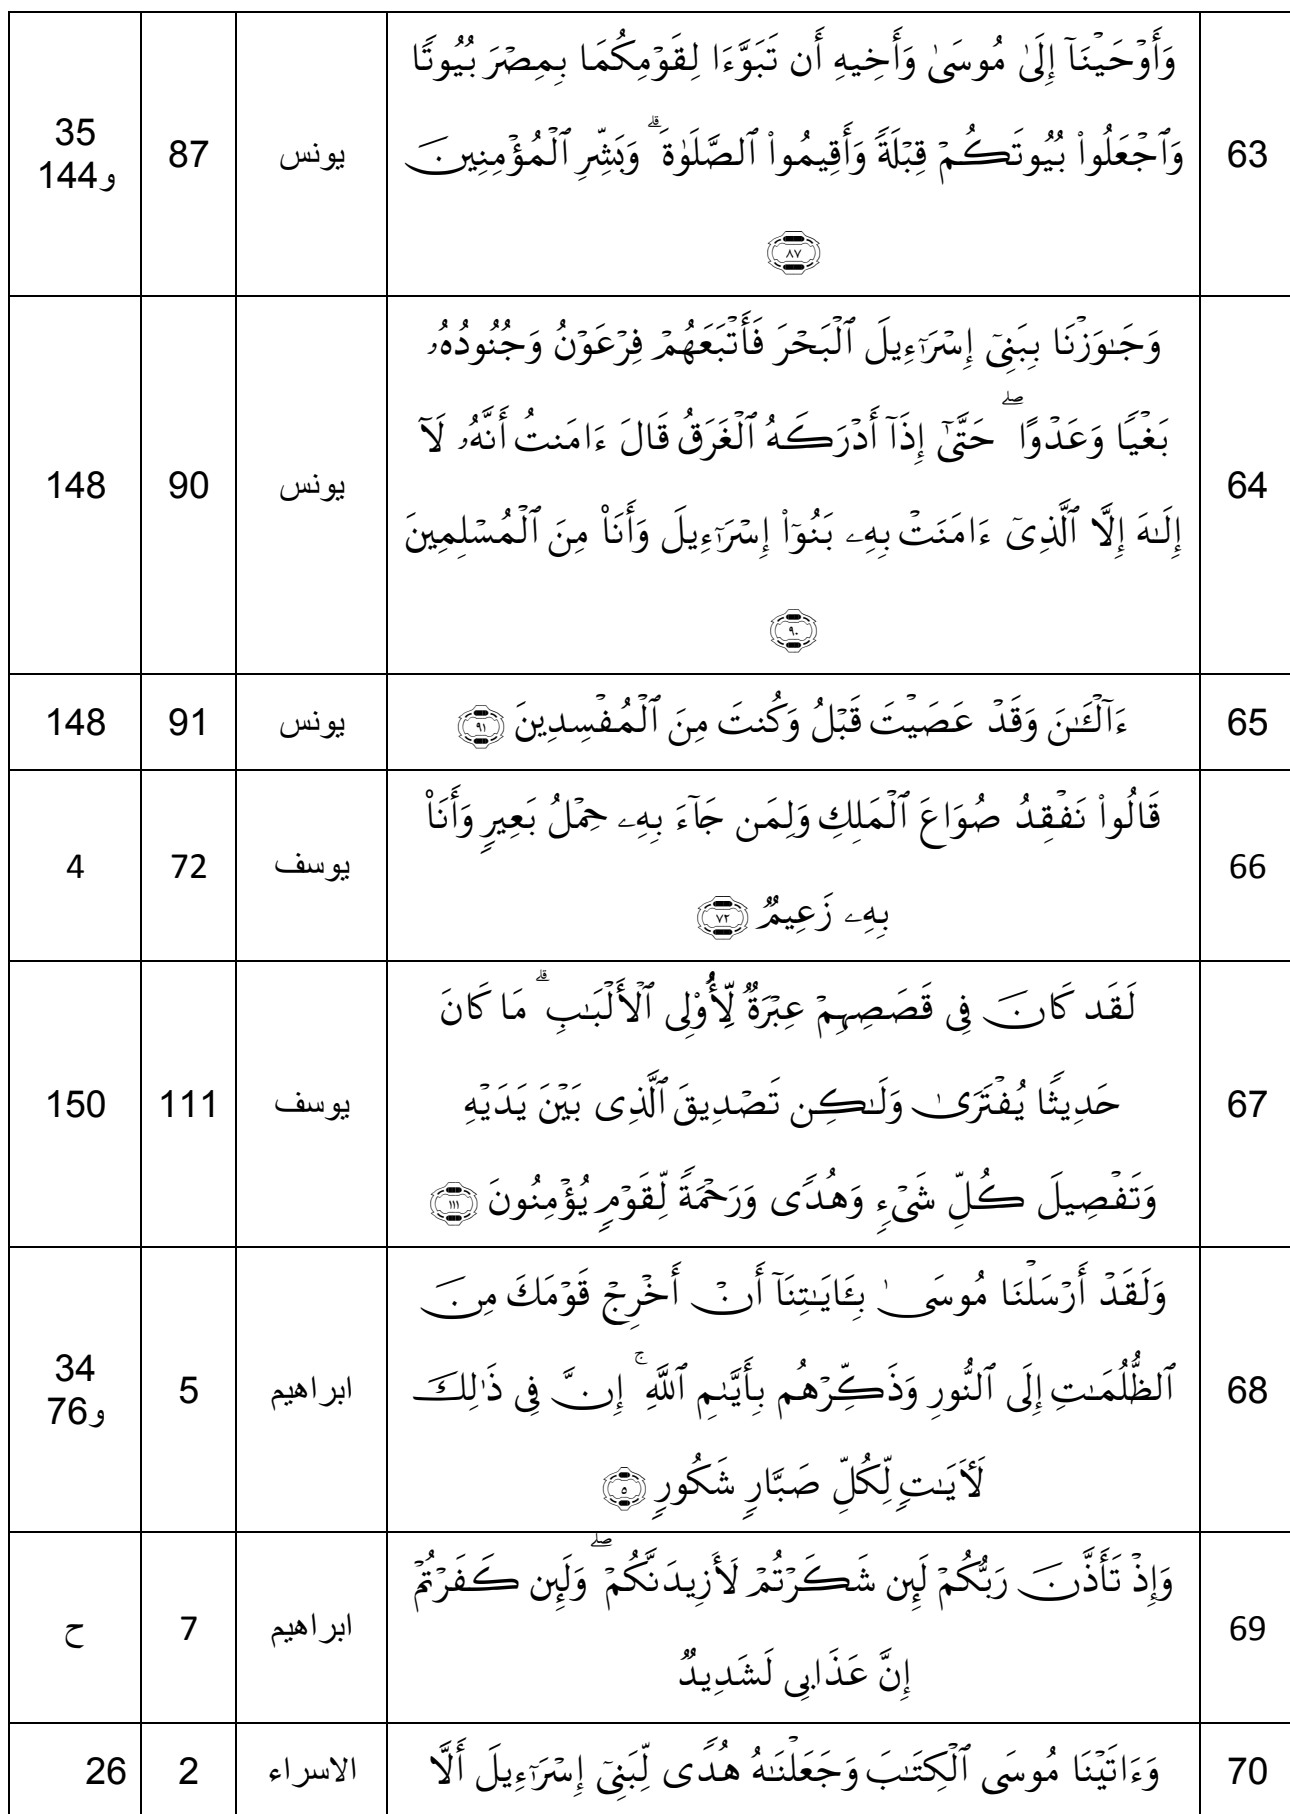 63 وَأَوۡحَيۡنَآ إِلَىٰ مُوسَىٰ وَأَخِيهِ أَن تَبَوَّءَا لِقَوۡمِكُمَا بِمِصۡرَ بُيُوتًا
وَٱجۡعَلُواْ بُيُوتَكُمۡ قِبۡلَةً وَأَقِيمُواْ ٱلصَّلَوٰةَۗ وَبَشِّرِ ٱلۡمُؤۡمِنِينَ
٨٧
يونس 87 35
و144
64 وَجَـٰوَزۡنَا بِبَنِىٓ إِسۡرَٰٓءِيلَ ٱلۡبَحۡرَ فَأَتۡبَعَهُمۡ فِرۡعَوۡنُ وَجُنُودُهُۥ
بَغۡيًا وَعَدۡوًاۖ حَتَّىٰٓ إِذَآ أَدۡرَكَهُ ٱلۡغَرَقُ قَالَ ءَامَنتُ أَنَّهُۥ لَآ
إِلَـٰهَ إِلَّا ٱلَّذِىٓ ءَامَنَتۡ بِهِۦ بَنُوٓاْ إِسۡرَٰٓءِيلَ وَأَنَا۠ مِنَ ٱلۡمُسۡلِمِينَ
٩٠
يونس 90 148
65 ءَآلۡـَٔـٰنَ وَقَدۡ عَصَيۡتَ قَبۡلُ وَكُنتَ مِنَ ٱلۡمُفۡسِدِينَ ٩١ يونس 91 148
66 قَالُواْ نَفۡقِدُ صُوَاعَ ٱلۡمَلِكِ وَلِمَن جَآءَ بِهِۦ حِمۡلُ بَعِيرٍ وَأَنَا۠
بِهِۦ زَعِيمٌ ٧٢
يوسف 72 4
67 لَقَدۡ كَانَ فِى قَصَصِهِمۡ عِبۡرَةٌ لِّأُوْلِى ٱلۡأَلۡبَـٰبِۗ مَا كَانَ
حَدِيثًا يُفۡتَرَىٰ وَلَـٰكِن تَصۡدِيقَ ٱلَّذِى بَيۡنَ يَدَيۡهِ
وَتَفۡصِيلَ كُلِّ شَىۡءٍ وَهُدًى وَرَحۡمَةً لِّقَوۡمٍ يُؤۡمِنُونَ ١١١
يوسف 111 150
68 وَلَقَدۡ أَرۡسَلۡنَا مُوسَىٰ بِـَٔايَـٰتِنَآ أَنۡ أَخۡرِجۡ قَوۡمَكَ مِنَ
ٱلظُّلُمَـٰتِ إِلَى ٱلنُّورِ وَذَكِّرۡهُم بِأَيَّـٰمِ ٱللَّهِۚ إِنَّ فِى ذَٰلِكَ
لَأَيَـٰتٍ لِّكُلِّ صَبَّارٍ شَكُورٍ ٥
ابراهيم 5 34
و76
69 وَإِذۡ تَأَذَّنَ رَبُّكُمۡ لَئِن شَكَرۡتُمۡ لَأَزِيدَنَّكُمۡۖ وَلَئِن كَفَرۡتُمۡ
إِنَّ عَذَابِى لَشَدِيدٌ
ابراهيم 7 ح
70 وَءَاتَيۡنَا مُوسَى ٱلۡكِتَـٰبَ وَجَعَلۡنَـٰهُ هُدًى لِّبَنِىٓ إِسۡرَٰٓءِيلَ أَلَّا الاسراء 2 26